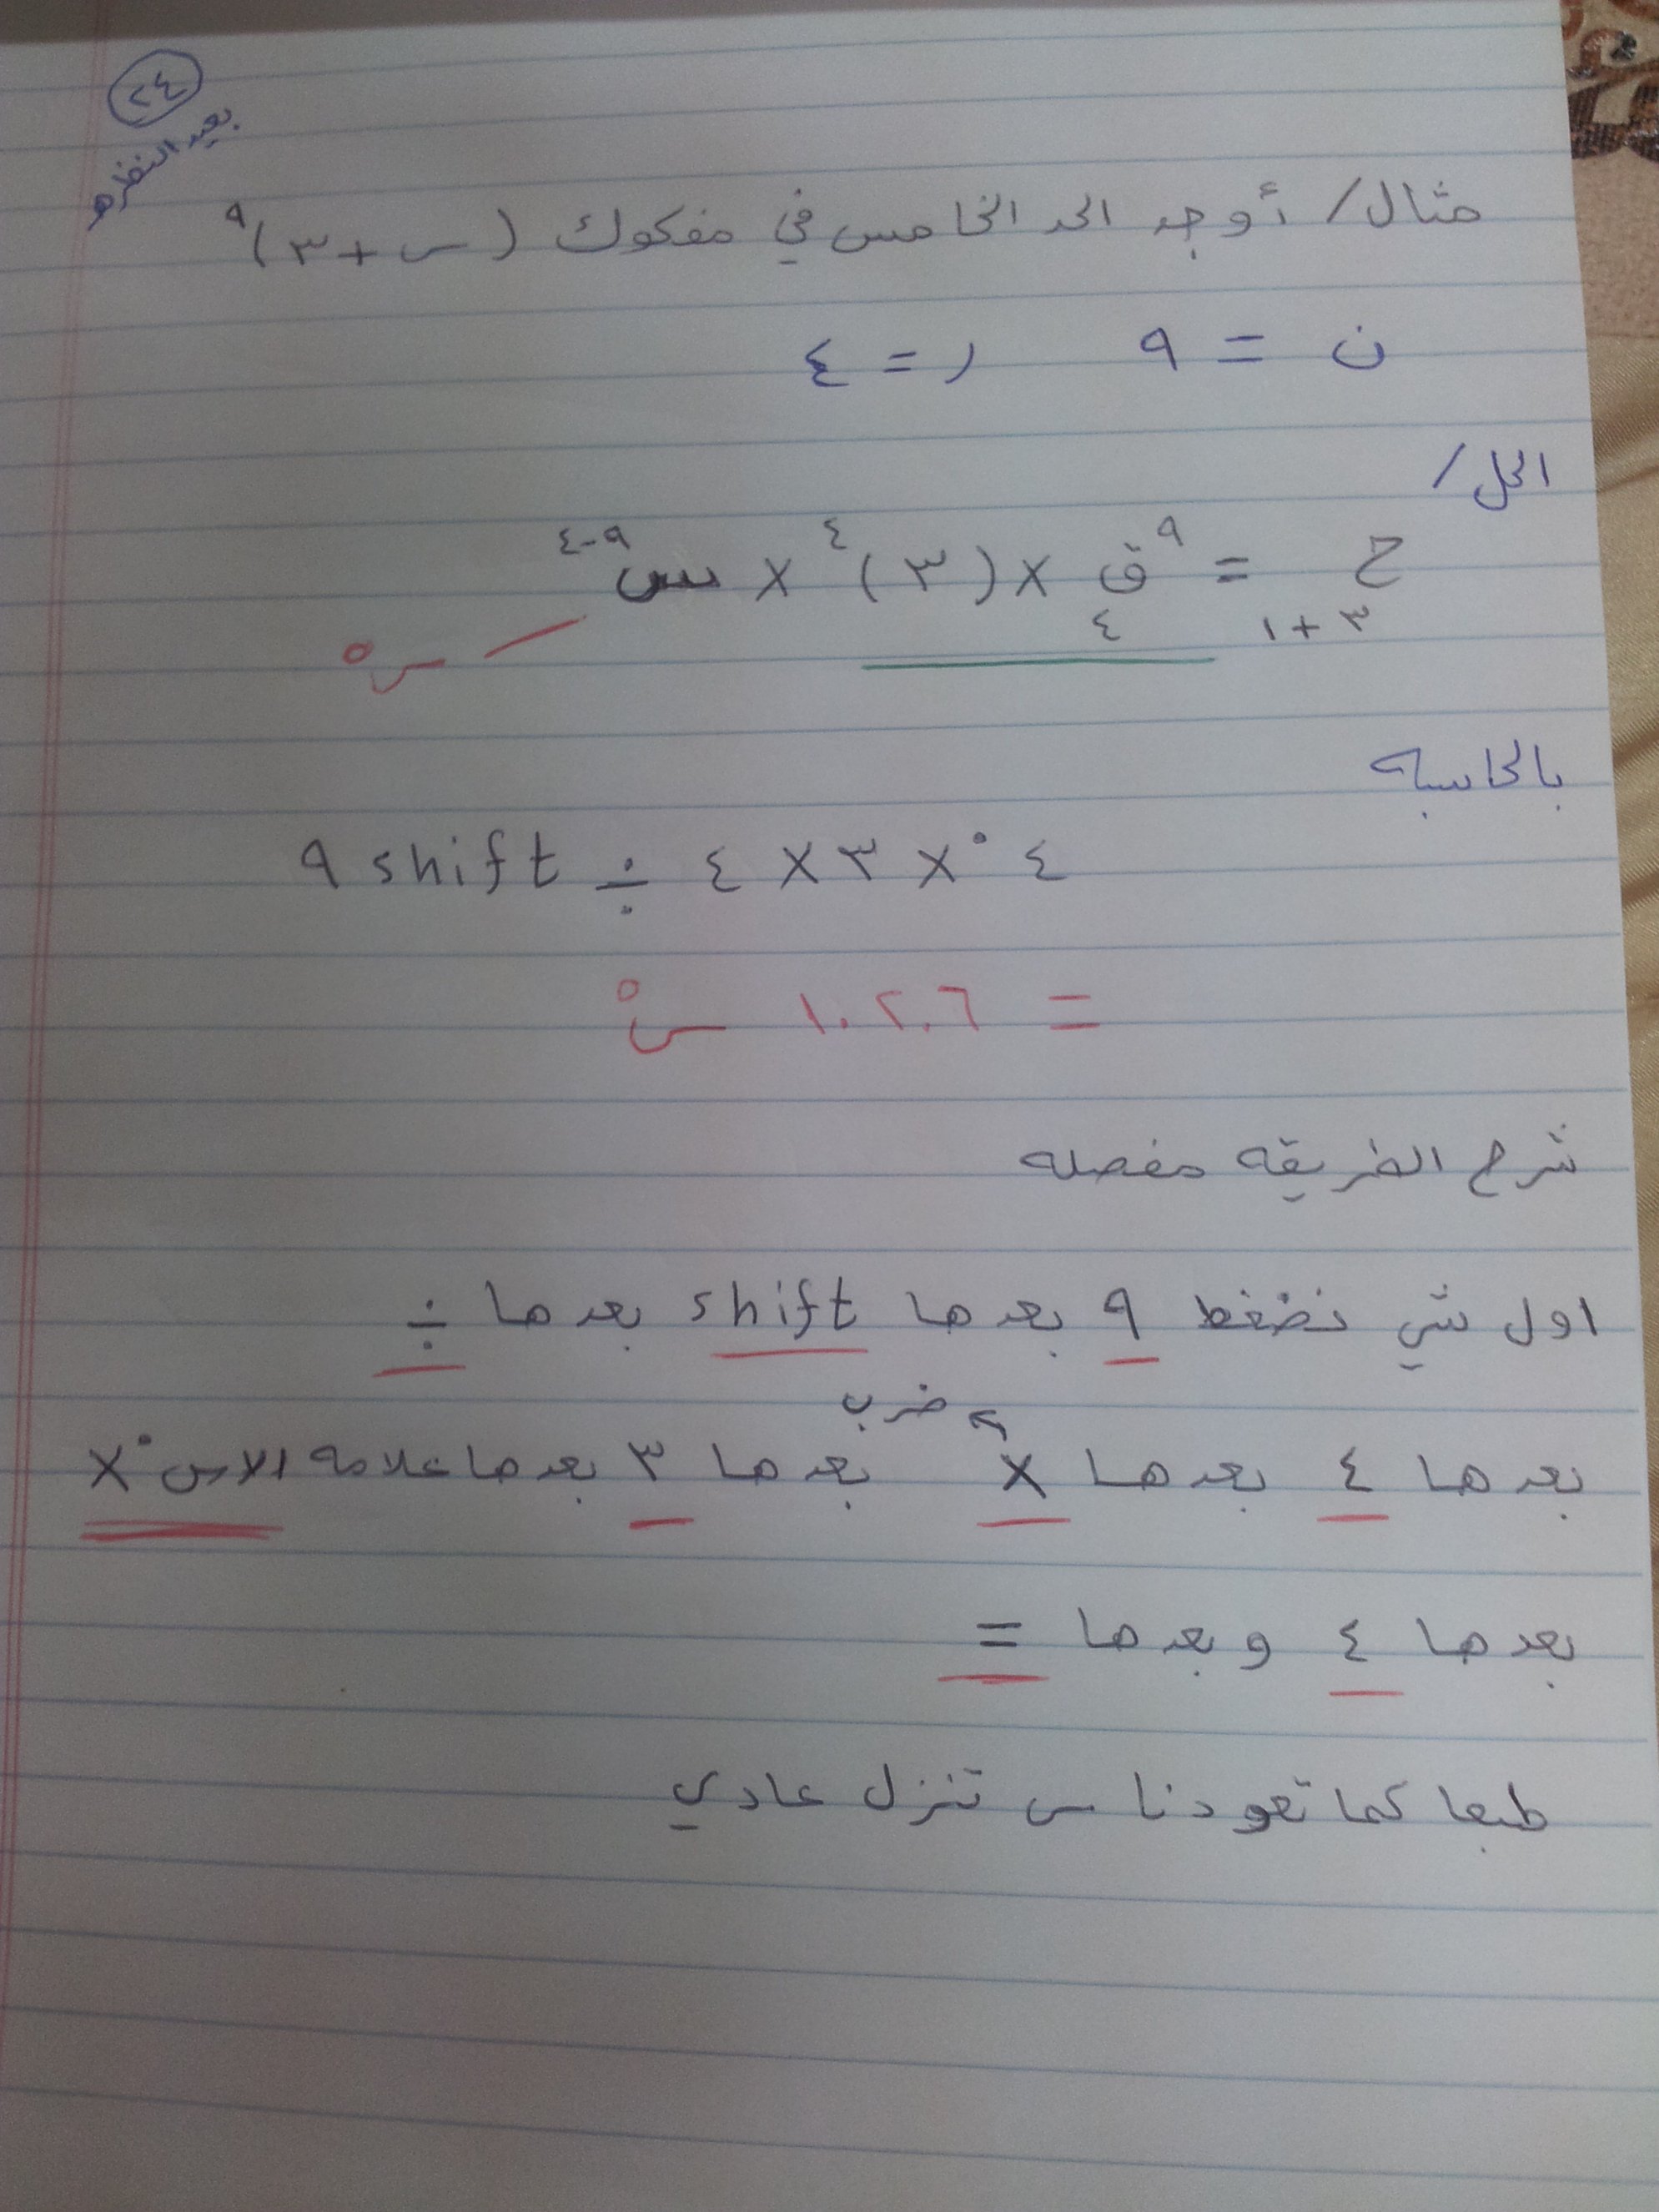 ٢٤
بعيد النظره
مثال/ أوجد الحد الخامس في مفكوك (س+٣)^٩
ن = ٩ ر = ٤
الحل/
ح ٣+١ = ^٩ق٤ × (٣)^٤ × س^٩-٤
س^٥
بالحاسبه
٩ shift ÷ ٤ × ٣ x^• ٤
= ١٠٢٠٦ س^٥
شرح الطريقه مفصله
اول شي نضغط ٩ بعدها shift بعدها ÷
ضرب
بعدها ٤ بعدها × بعدها ٣ بعدها علامه الاس x^•
بعدها ٤ وبعدها =
طبعا كما تعودنا س تنزل عادي